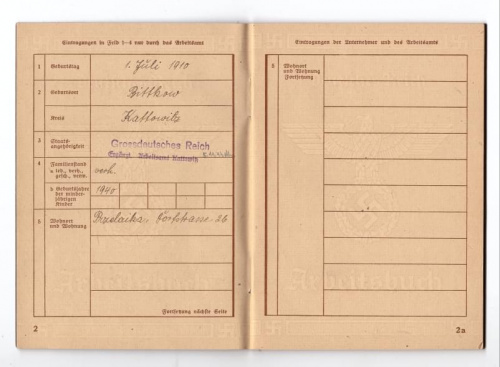 Eintragungen in Feld 1–4 nur durch das Arbeitsamt
1 Geburtstag 1. Juli 1910
2 Geburtsort Bittkow
Kreis Kattowitz
3 Staats-
angehörigkeit
Grossdeutsches Reich
Arbeitsamt Kattowitz
4 Familienstand
verh.
b Geburtsjahre
der minder-
jährigen
Kinder
1940
5 Wohnort
und Wohnung
Dorfstrasse 26
Fortsetzung nächste Seite
2
Eintragungen der Unternehmer und des Arbeitsamts
5 Wohnort
und Wohnung
Fortsetzung
Arbeitsbuch
2a